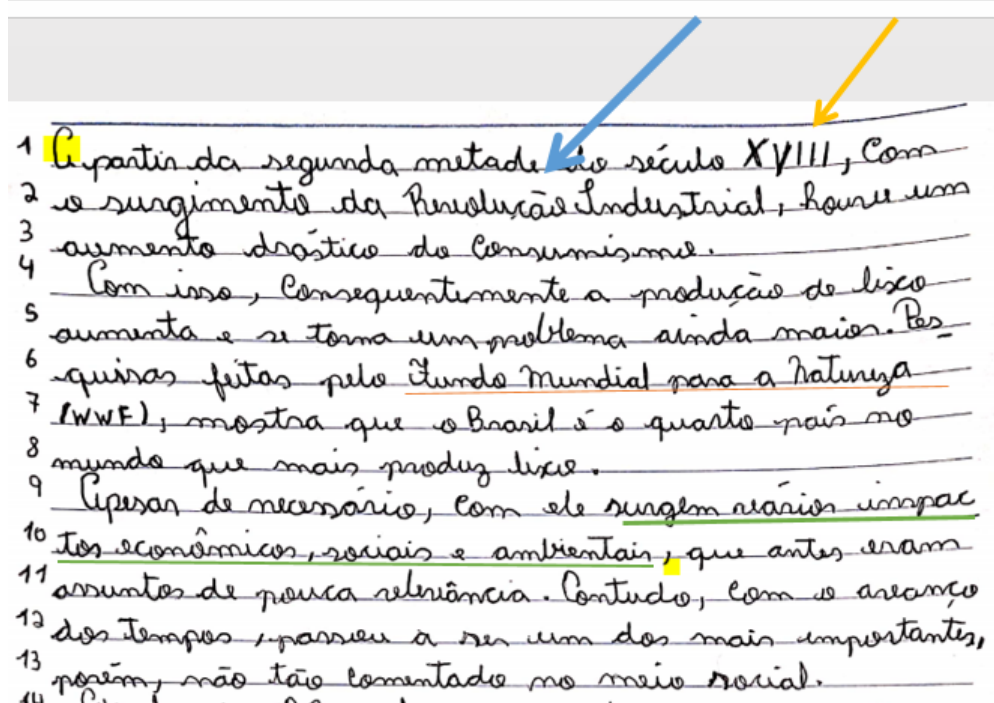 1 A partir da segunda metade do século XVIII, com
2 o surgimento da Revolução Industrial, houve um
3 aumento drástico do consumismo.
4 Com isso, consequentemente a produção de lixo
5 aumenta e se torna um problema ainda maior. Pes-
6 quisas feitas pelo Fundo Mundial para a Natureza
7 (WWF), mostra que o Brasil é o quarto país no
8 mundo que mais produz lixo.
9 Apesar de necessário, com ele surgem vários impac
10 tos econômicos, sociais e ambientais, que antes eram
11 assuntos de pouca relevância. Contudo, com o avanço
12 dos tempos, passou a ser um dos mais importantes,
13 porém, não tão comentado no meio social.
14